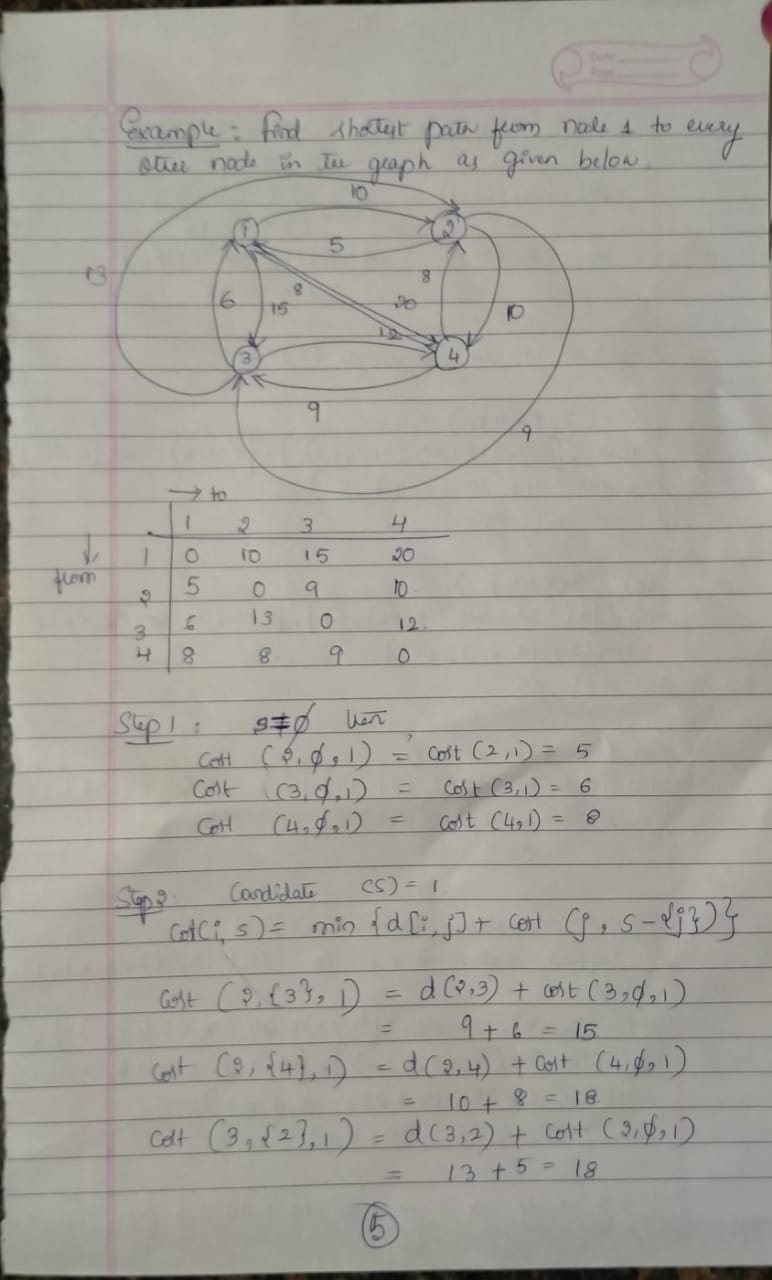 Date
Page
Example: Find shortest path from node 1 to every
other node in the graph as given below.
10
1 2
5
13 8 8
6 15 20 10
12
3 4
9
9
→ to
1 2 3 4
↓ 1 0 10 15 20
from
2 5 0 9 10
3 6 13 0 12.
4 8 8 9 0
Step 1: s=ϕ then
Cost (2, ϕ, 1) = cost (2,1) = 5
Cost (3, ϕ, 1) = cost (3,1) = 6
Cost (4, ϕ, 1) = cost (4,1) = 8
Step 2 Candidate (S) = 1
Cost(i, s) = min {d[i,j] + cost (j, s-{j})}
Cost (2, {3}, 1) = d(2,3) + cost (3, ϕ, 1)
= 9 + 6 = 15
Cost (2, {4}, 1) = d(2,4) + cost (4, ϕ, 1)
= 10 + 8 = 18
Cost (3, {2}, 1) = d(3,2) + cost (2, ϕ, 1)
= 13 + 5 = 18
5